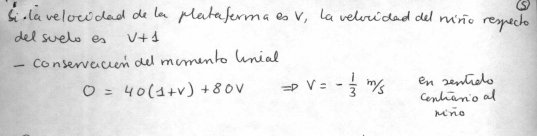 (5)
Si la velocidad de la plataforma es V, la velocidad del niño respecto
del suelo es V+1
- conservación del momento linial
0 = 40(1+V) + 80V ⇒ V = - 1/3 m/s en sentido
contrario al
niño